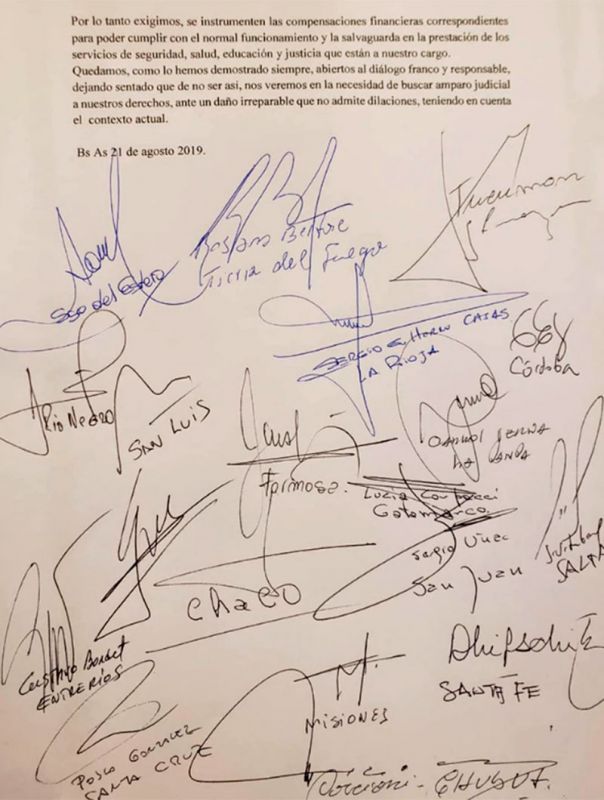 Por lo tanto exigimos, se instrumenten las compensaciones financieras correspondientes
para poder cumplir con el normal funcionamiento y la salvaguarda en la prestación de los
servicios de seguridad, salud, educación y justicia que están a nuestro cargo.
Quedamos, como lo hemos demostrado siempre, abiertos al diálogo franco y responsable,
dejando sentado que de no ser asi, nos veremos en la necesidad de buscar amparo judicial
a nuestros derechos, ante un daño irreparable que no admite dilaciones, teniendo en cuenta
el contexto actual.
Bs As 21 de agosto 2019.
Tucuman
Sgo del Estero
Tierra del Fuego
SERGIO G. CASAS
LA RIOJA
Córdoba
Rio Negro
SAN LUIS
LA PAMPA
Formosa.
Lucia Corpacci
Catamarca
Sergio Uñac
San Juan
SALTA
Chaco
Gustavo Bordet
ENTRE RIOS
SANTA FE
MISIONES
GONZALEZ
SANTA CRUZ
CHUBUT.